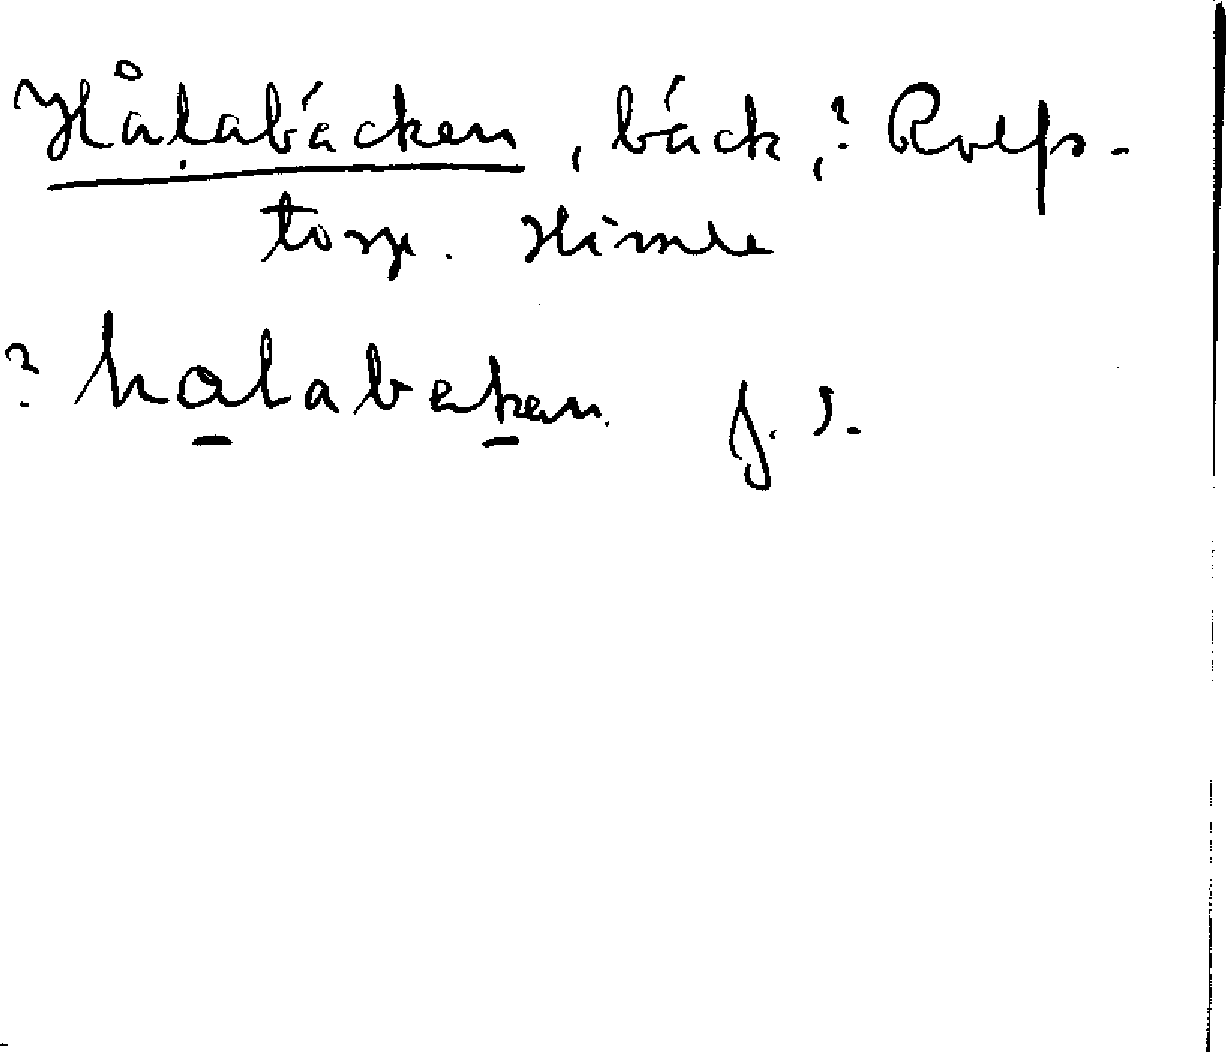 Hålabäcken, bäck, ? Rolfs-
torp. Himle
? halabeken. f. s.